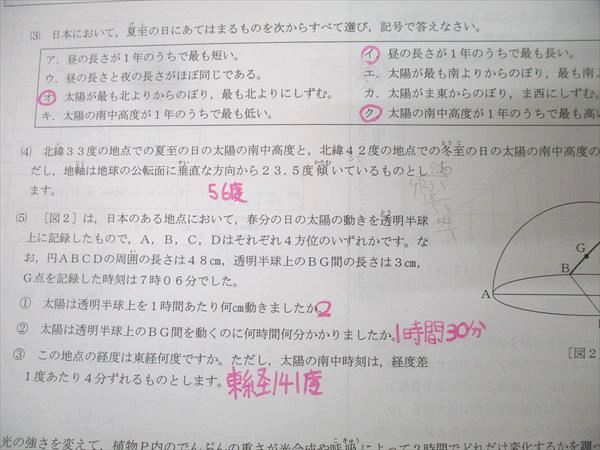 ⑶ 日本において,夏至の日にあてはまるものを次からすべて選び,記号で答えなさい。
ア.昼の長さが1年のうちで最も短い。
イ.昼の長さが1年のうちで最も長い。
ウ.昼の長さと夜の長さがほぼ同じである。
エ.太陽が最も南よりからのぼり,最も南よ
オ.太陽が最も北よりからのぼり,最も北よりにしずむ。
カ.太陽がま東からのぼり,ま西にしずむ。
キ.太陽の南中高度が1年のうちで最も低い。
ク.太陽の南中高度が1年のうちで最も高い
⑷ 北緯33度の地点での夏至の日の太陽の南中高度と,北緯42度の地点での冬至の日の太陽の南中高度の
だし,地軸は地球の公転面に垂直な方向から23.5度傾いているものとし
ます。
56度
⑸ [図2]は,日本のある地点において,春分の日の太陽の動きを透明半球
上に記録したもので,A,B,C,Dはそれぞれ4方位のいずれかです。な
お,円ABCDの周囲の長さは48cm,透明半球上のBG間の長さは3cm,
G点を記録した時刻は7時06分でした。
① 太陽は透明半球上を1時間あたり何cm動きましたか。2
② 太陽は透明半球上のBG間を動くのに何時間何分かかりましたか。1時間30分
③ この地点の経度は東経何度ですか。ただし,太陽の南中時刻は,経度差
1度あたり4分ずれるものとします。東経141度
G
B
A
[図2
光の強さを変えて,植物P内のでんぷんの重さが光合成や呼吸によって2時間でどれだけ変化するかを調べ